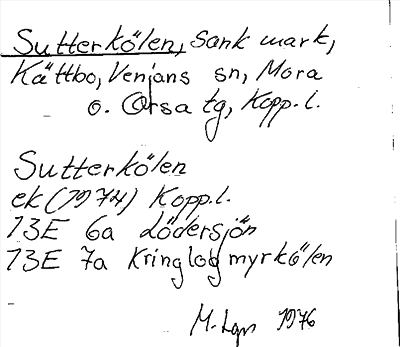 Sutterkölen, sank mark,
Kättbo, Venjans sn, Mora
o. Orsa tg, Kopp.l.
Sutterkölen
ek (1974) Kopp.l.
13E 6a Lödersjön
13E 7a Kringlogmyrkölen
M. Lgn 1976